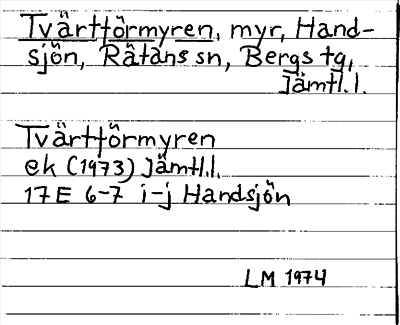 Tvärtförmyren, myr, Hand-
sjön, Rätans sn, Bergs tg,
Jämtl.l.
Tvärtförmyren
ek (1973) Jämtl.l.
17E 6-7 i-j Handsjön
LM 1974